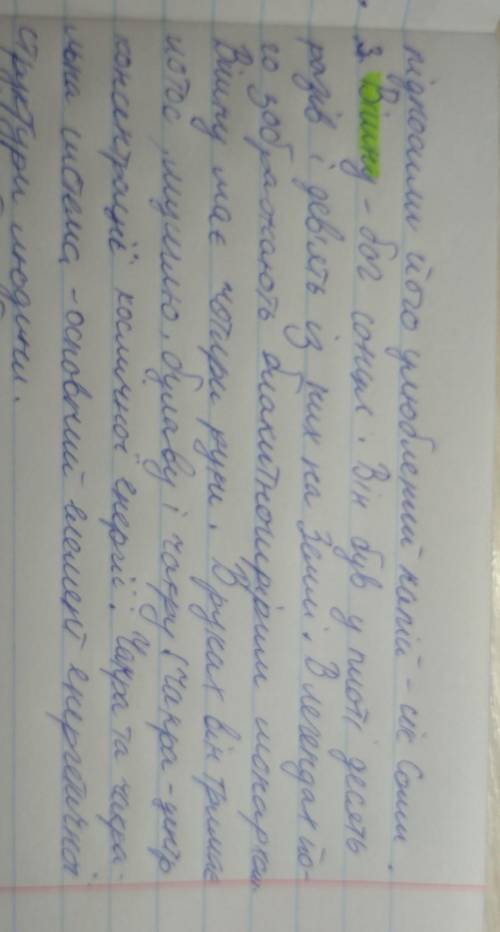 підносили його улюблений напій - сік Соми.
3. Вішну - бог сонця. Він був у плоті десять
разів і дев'ять із них на Землі. В легендах йо-
го зображають блакитношкірим монархом
Вішну має чотири руки. В руках він тримає
лотос, мушлю, булаву і чакру (чакра - центр
концентрації космічної енергії. Чакра та чакра-
льна система - основний елемент енергетичної
структури людини.